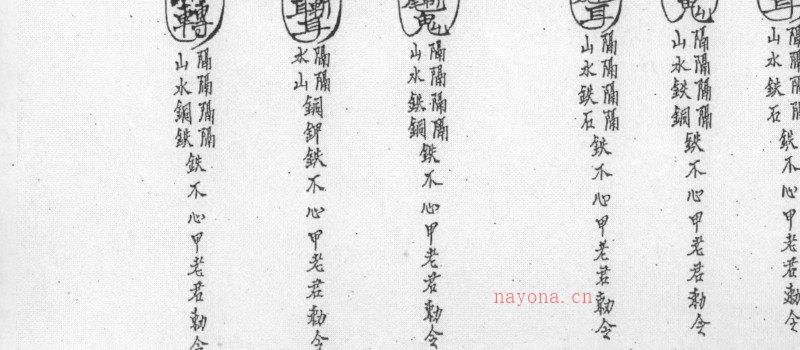 隔隔隔隔
山水鉄石
鉄不心甲老君勅
鬼
隔隔隔隔
山水鉄銅
鉄不心甲老君勅令
耳
隔隔隔隔
山水鉄石
鉄不心甲老君勅令
鬼
隔隔隔隔
山水鉄銅
鉄不心甲老君勅令
隔隔
水山
銅鉀鉄不心甲老君勅令
轉
隔隔隔隔
山水銅鉄
鉄不心甲老君勅令
nayona.cn